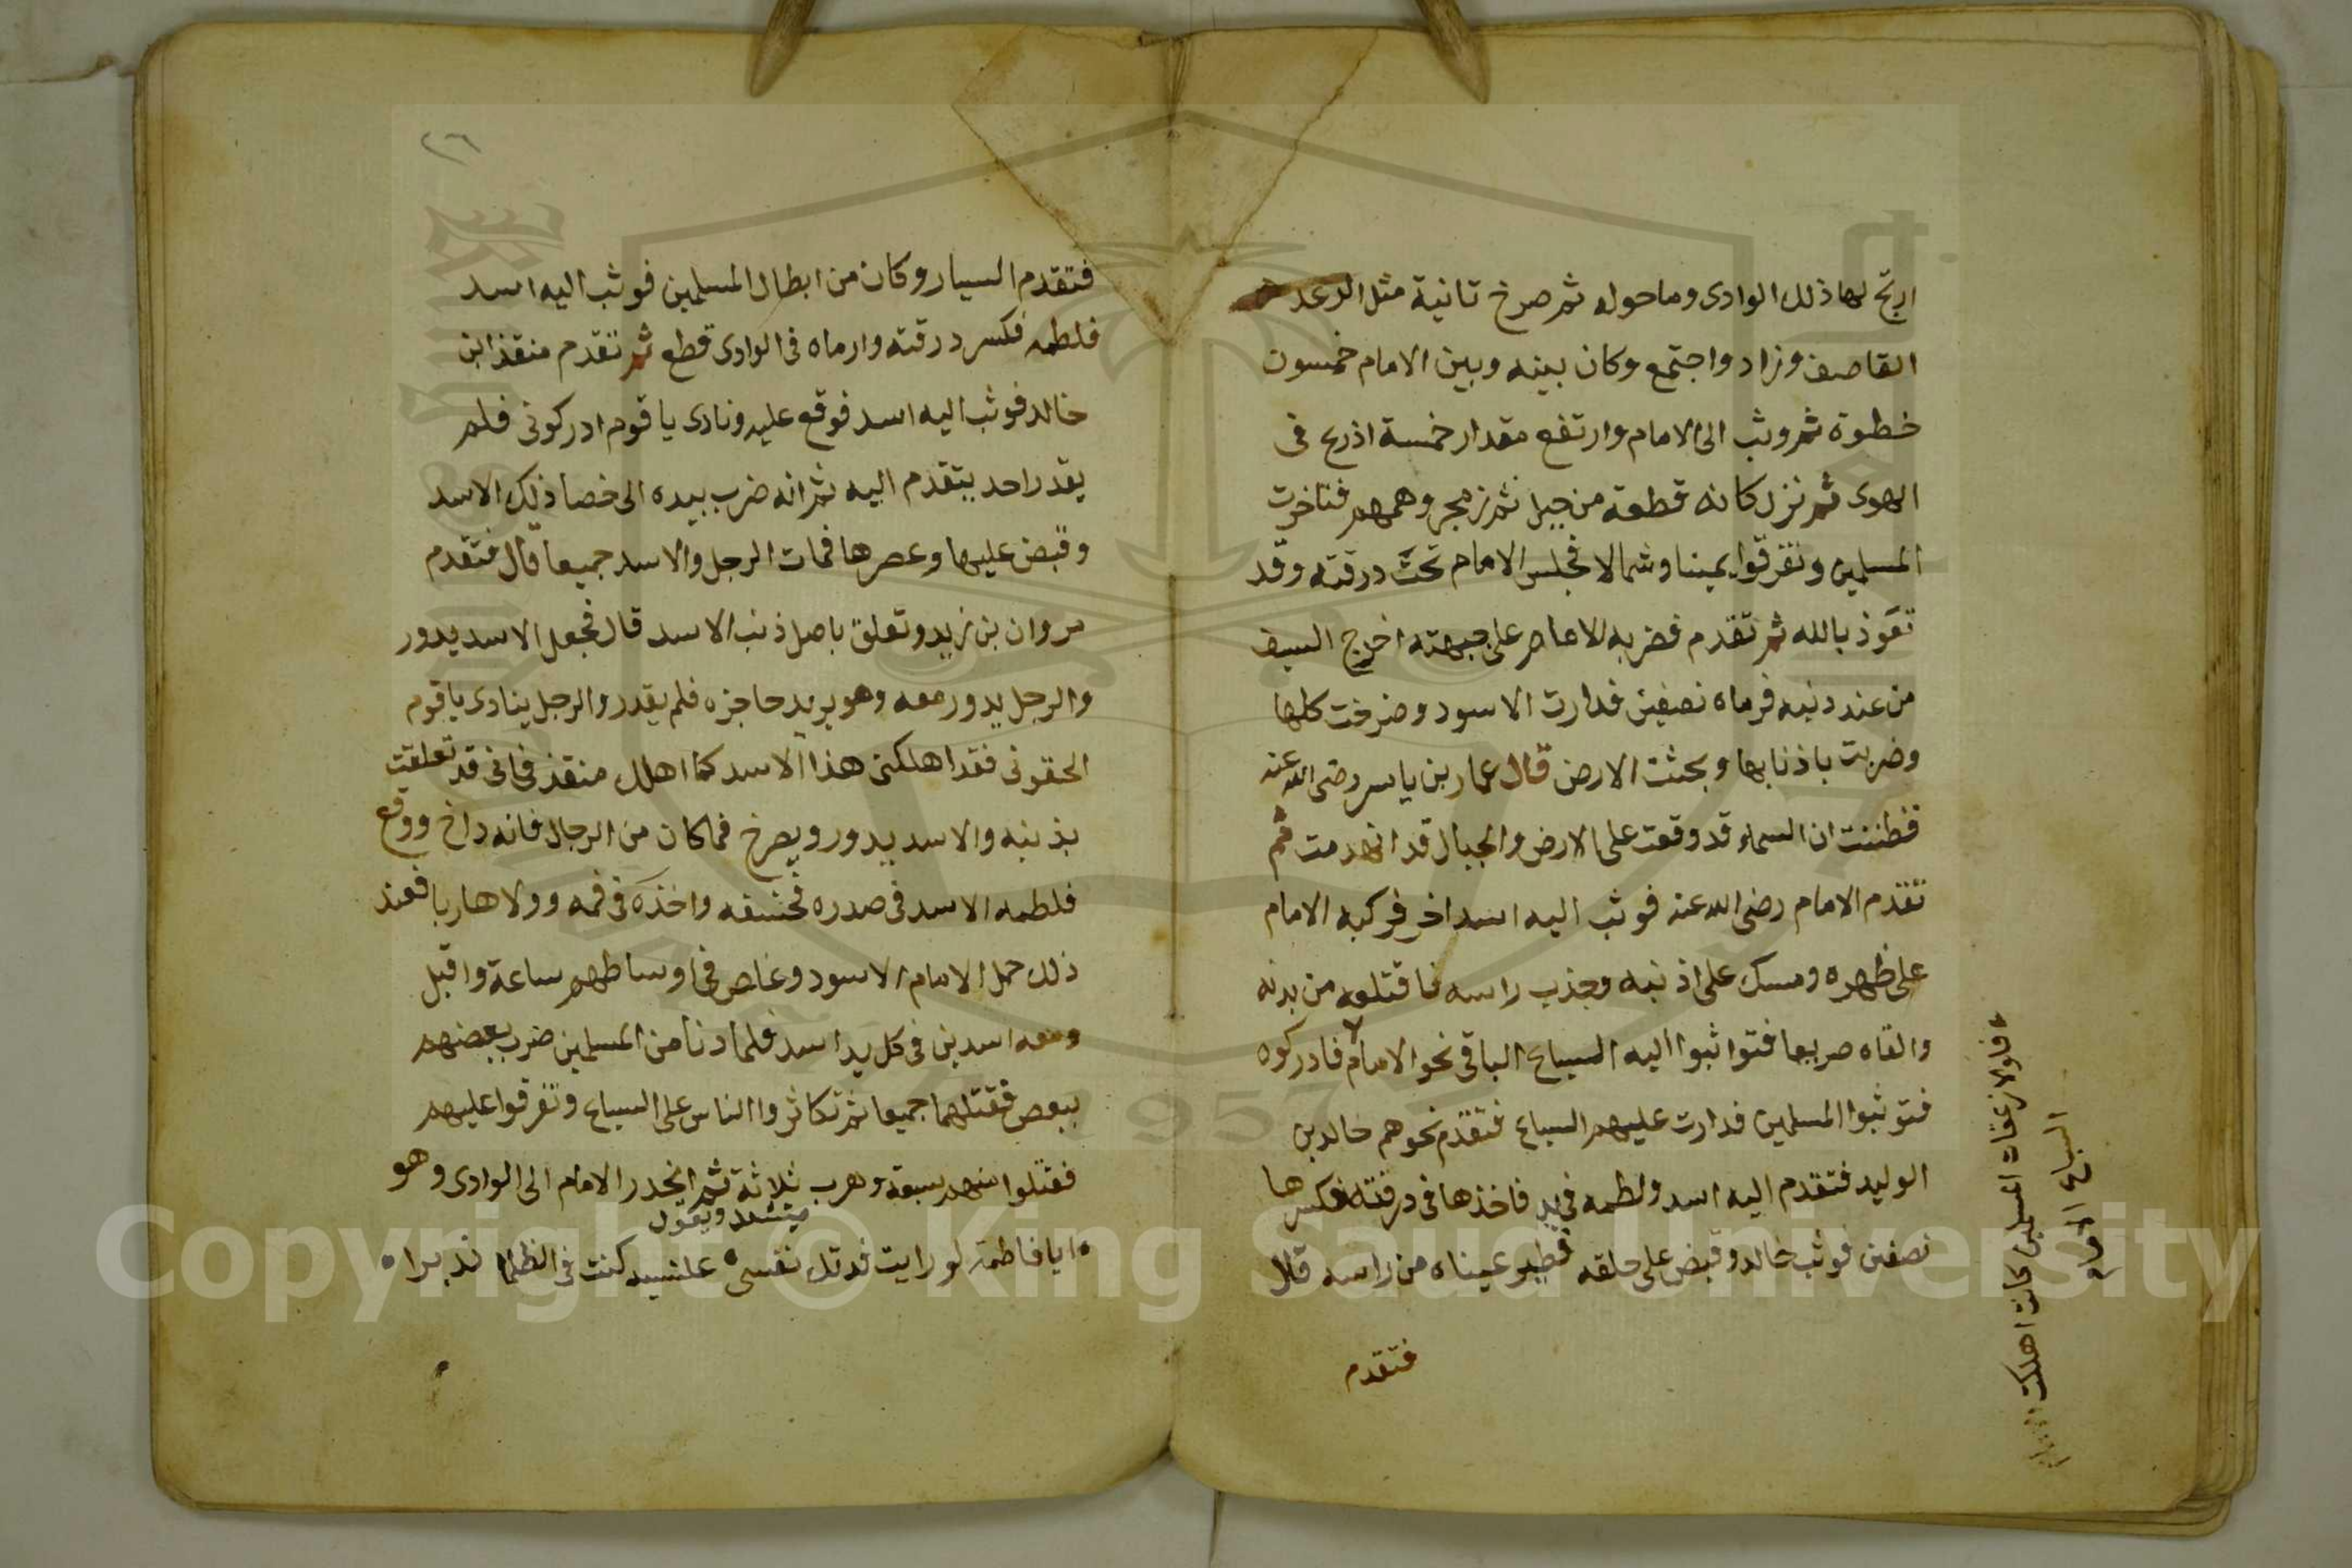 ارتج لها ذلك الوادى وما حوله ثم صرخ تانية مثل الرعد
القاصف وزاد واجتمع وكان بينه وبين الامام خمسون
خطوة ثم وثب الى الامام وارتفع مقدار خمسة اذرع فى
الهوى ثم نزل كانه قطعة من جبل ثم زمجر وهمهم فتاخرت
المسلمين وتفرقوا يمينا وشمالا فجلس الامام تحت درقته وقد
تعوذ بالله ثم تقدم فضربه الامام على جبهته اخرج السيف
من عند دنبه فرماه نصفين فدارت الاسود وصرخت كلها
وضربت باذنابها وبحثت الارض قال عمار بن ياسر رضى الله عنه
فظننت ان السماء قد وقعت على الارض والجبال قد انهدمت ثم
تقدم الامام رضى الله عنه فوثب اليه اسد اخر فركبه الامام
على ظهره ومسك على اذنيه وجذب راسه فاقتلعه من بدنه
والقاه صريعا فتواثبوا اليه السباع الباقى نحو الامام فادركوه
فتوثبوا المسلمين فدارت عليهم السباع فتقدم نحوهم خالد بن
الوليد فتقدم اليه اسد ولطمه فى يد فاخذها فى درقته فكسرها
نصفين فوثب خالد وقبض على حلقه فطير عيناه من راسه قال
فتقدم
فلولا زعقات المسلمين كانت اهلكت
السباع الامام
٢٦
فتقدم السيار وكان من ابطال المسلمين فوثب اليه اسد
فلطمه فكسر درقته وارماه فى الوادى قطع ثم تقدم منقذ ابن
خالد فوثب اليه اسد فوقع عليه ونادى يا قوم ادركونى فلم
يقدر احد يتقدم اليه ثم انه ضرب بيده الى خصا ذلك الاسد
وقبض عليها وعصرها فمات الرجل والاسد جميعا قال فتقدم
مروان بن زيد وتعلق باصل ذنب الاسد قال فجعل الاسد يدور
والرجل يدور معه وهو يريد حاجزه فلم يقدر والرجل ينادى يا قوم
الحقونى فقد اهلكنى هذا الاسد كما اهلك منقذ فانى قد تعلقت
بذنبه والاسد يدور ويصرخ فما كان من الرجال فانه داخ ووقع
فلطمه الاسد فى صدره فخسفه واخذه فى فمه وولا هاربا فعند
ذلك حمل الامام الاسود وغاص فى اوساطهم ساعة واقبل
ومعه اسدين فى كل يد اسد فلما دنا من المسلمين ضرب بعضهم
ببعض فقتلهما جميعا ثم تكاثروا الناس على السباع وتفرقوا عليهم
فقتلوا منهم سبعة وهرب ثلاثة ثم انحدر الامام الى الوادى وهو
ينشد ويقول
ايا فاطمة لو رايت فدتك نفسى علىسيد كنت فى الظلما نديرا
Copyright © King Saud University
1957